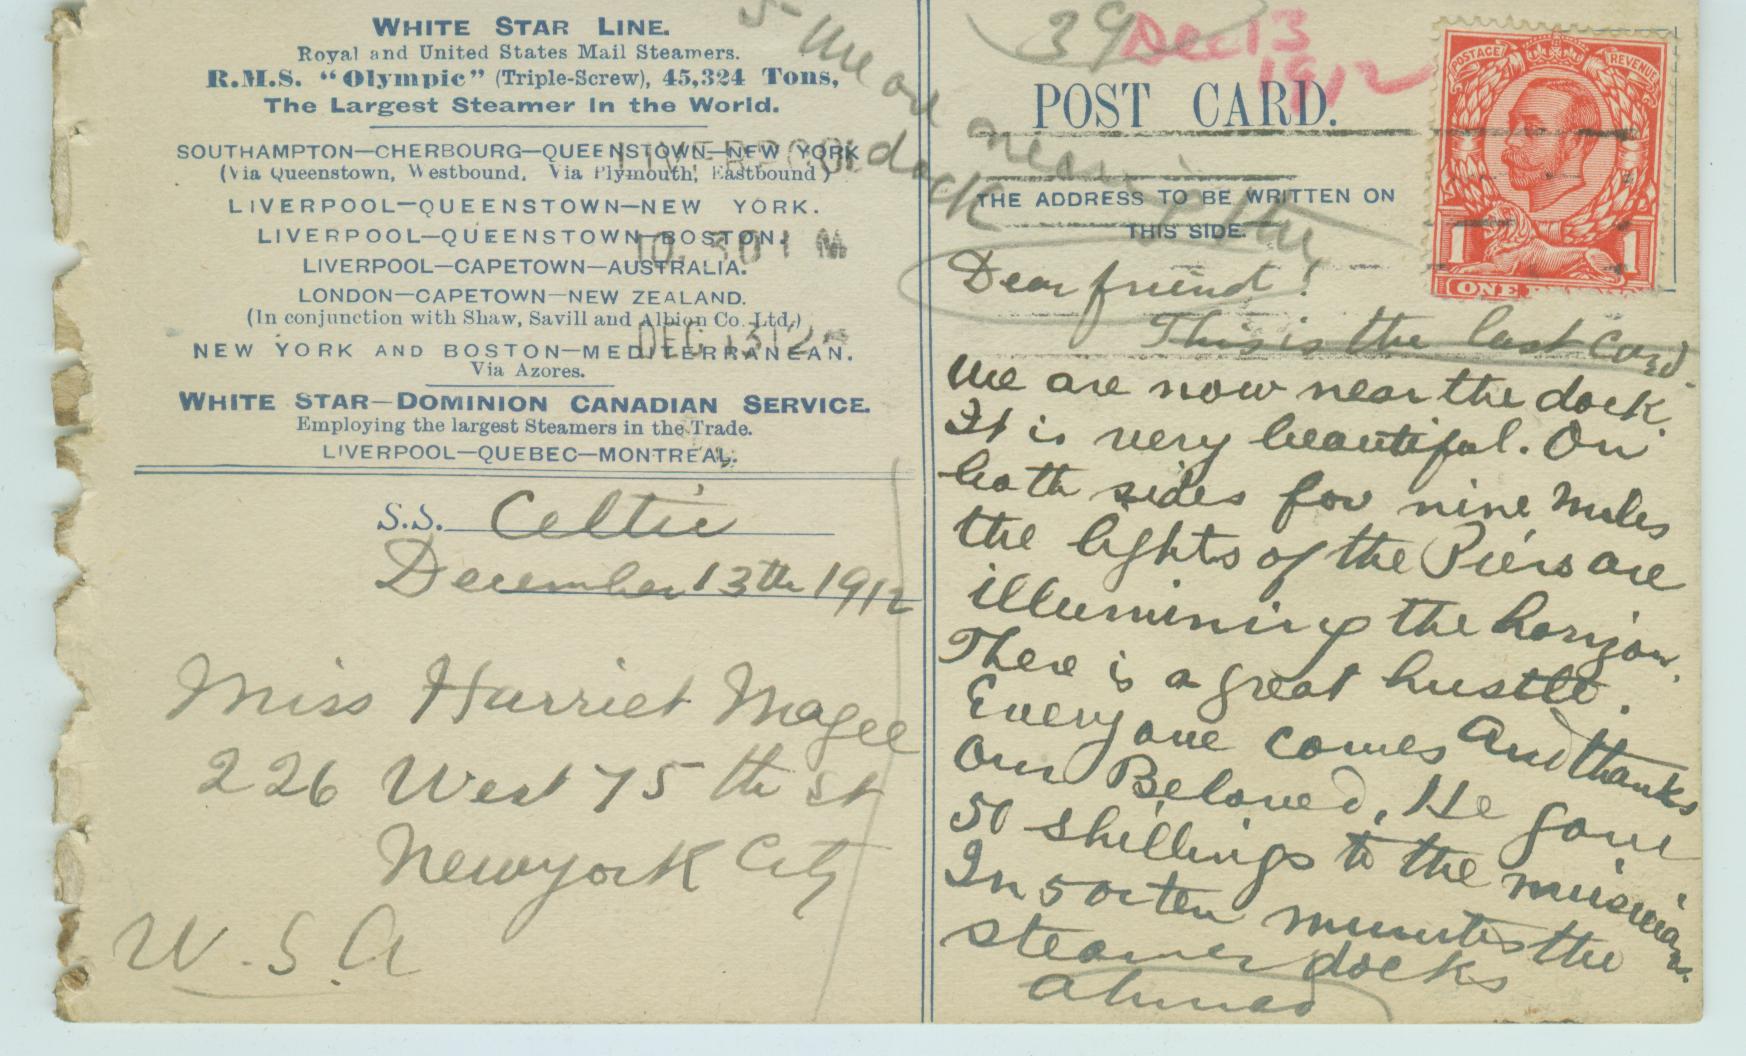 WHITE STAR LINE.
Royal and United States Mail Steamers.
R.M.S. “Olympic” (Triple-Screw), 45,324 Tons,
The Largest Steamer in the World.
SOUTHAMPTON—CHERBOURG—QUEENSTOWN—NEW YORK
(Via Queenstown, Westbound, Via Plymouth, Eastbound)
LIVERPOOL—QUEENSTOWN—NEW YORK.
LIVERPOOL—QUEENSTOWN—BOSTON.
LIVERPOOL—CAPETOWN—AUSTRALIA.
LONDON—CAPETOWN—NEW ZEALAND.
(In conjunction with Shaw, Savill and Albion Co. Ltd.)
NEW YORK AND BOSTON—MEDITERRANEAN.
Via Azores.
WHITE STAR—DOMINION CANADIAN SERVICE.
Employing the largest Steamers in the Trade.
LIVERPOOL—QUEBEC—MONTREAL.
LIVERPOOL
10.30 PM
DEC 13 12
S.S. Celtic
December 13th 1912
Miss Harriet Magee
226 West 75th St
Newyork City
U.S.A
39
Dec 13
1912
POST CARD.
THE ADDRESS TO BE WRITTEN ON
THIS SIDE.
POSTAGE REVENUE
1 1
ONE
5- We are near the
dock
Dear friend!
This is the last Card.
We are now near the dock.
It is very beautiful. On
both sides for nine miles
the lights of the Piers are
illumining the horizon.
There is a great hustle.
Every one comes and thanks
Our Beloved. He gave
50 shillings to the musicians.
In 5 or ten minutes the
steamer docks
Ahmad